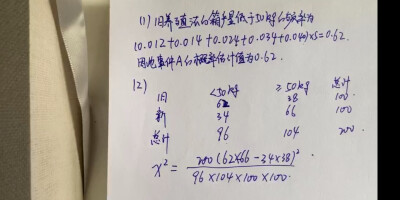 (1) 旧养殖法的箱产量低于50kg的频率为
(0.012+0.014+0.024+0.034+0.040)×5=0.62.
因此事件A的概率估计值为0.62.
(2) <50kg ≥50kg 总计
旧 62 38 100.
新 34 66 100.
总计 96 104 200
x² = 200(62×66-34×38)² / 96×104×100×100.